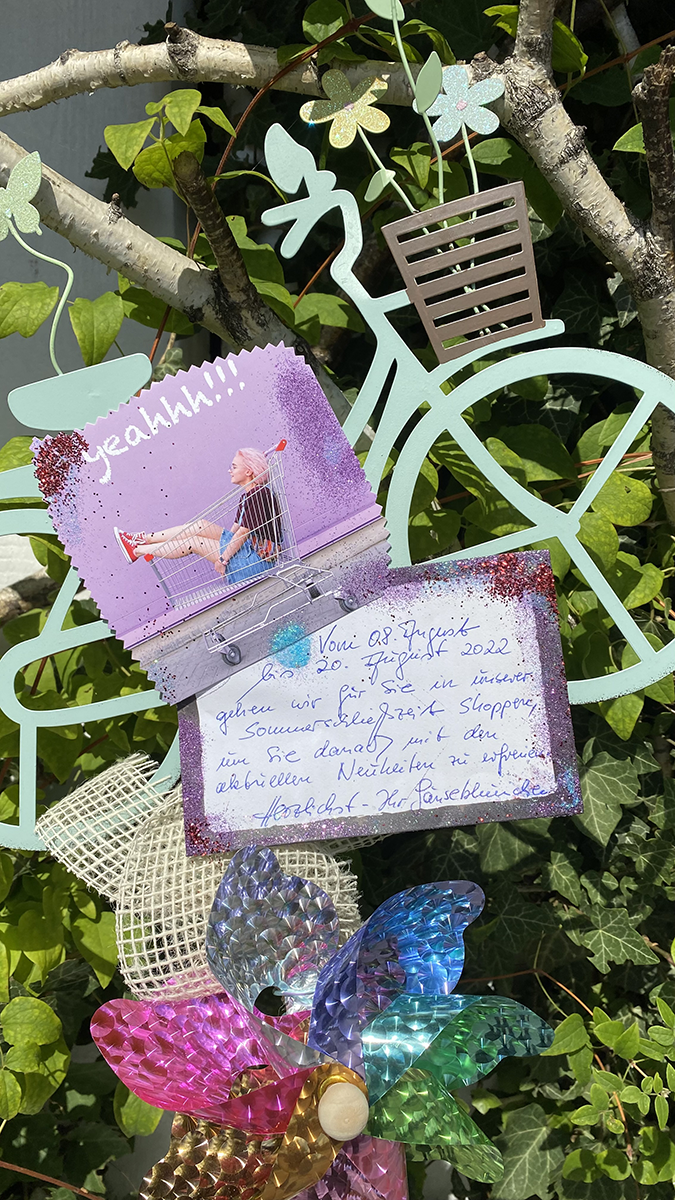 yeahhh!!!
Vom 08. August
bis 20. August 2022
gehen wir für Sie in unserer
Sommerschließzeit Shoppen,
um Sie danach mit den
aktuellen Neuheiten zu erfreuen
Herzlichst - Ihr Gänseblümchen